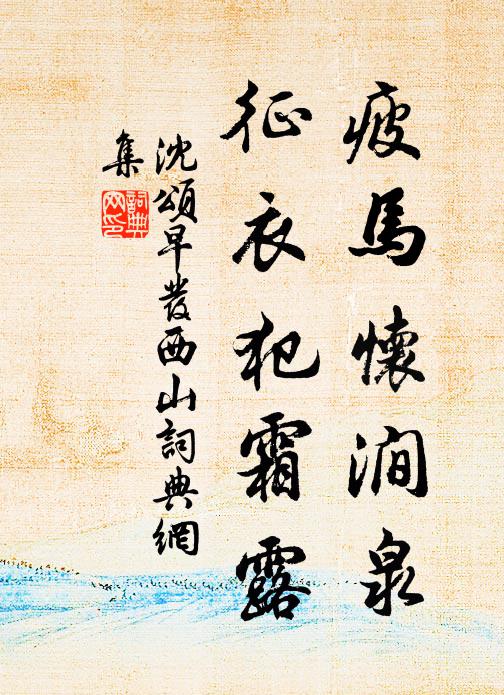 疲馬懷澗泉
征衣犯霜露
沈頌早發西山詞典網
集
詞典
网印